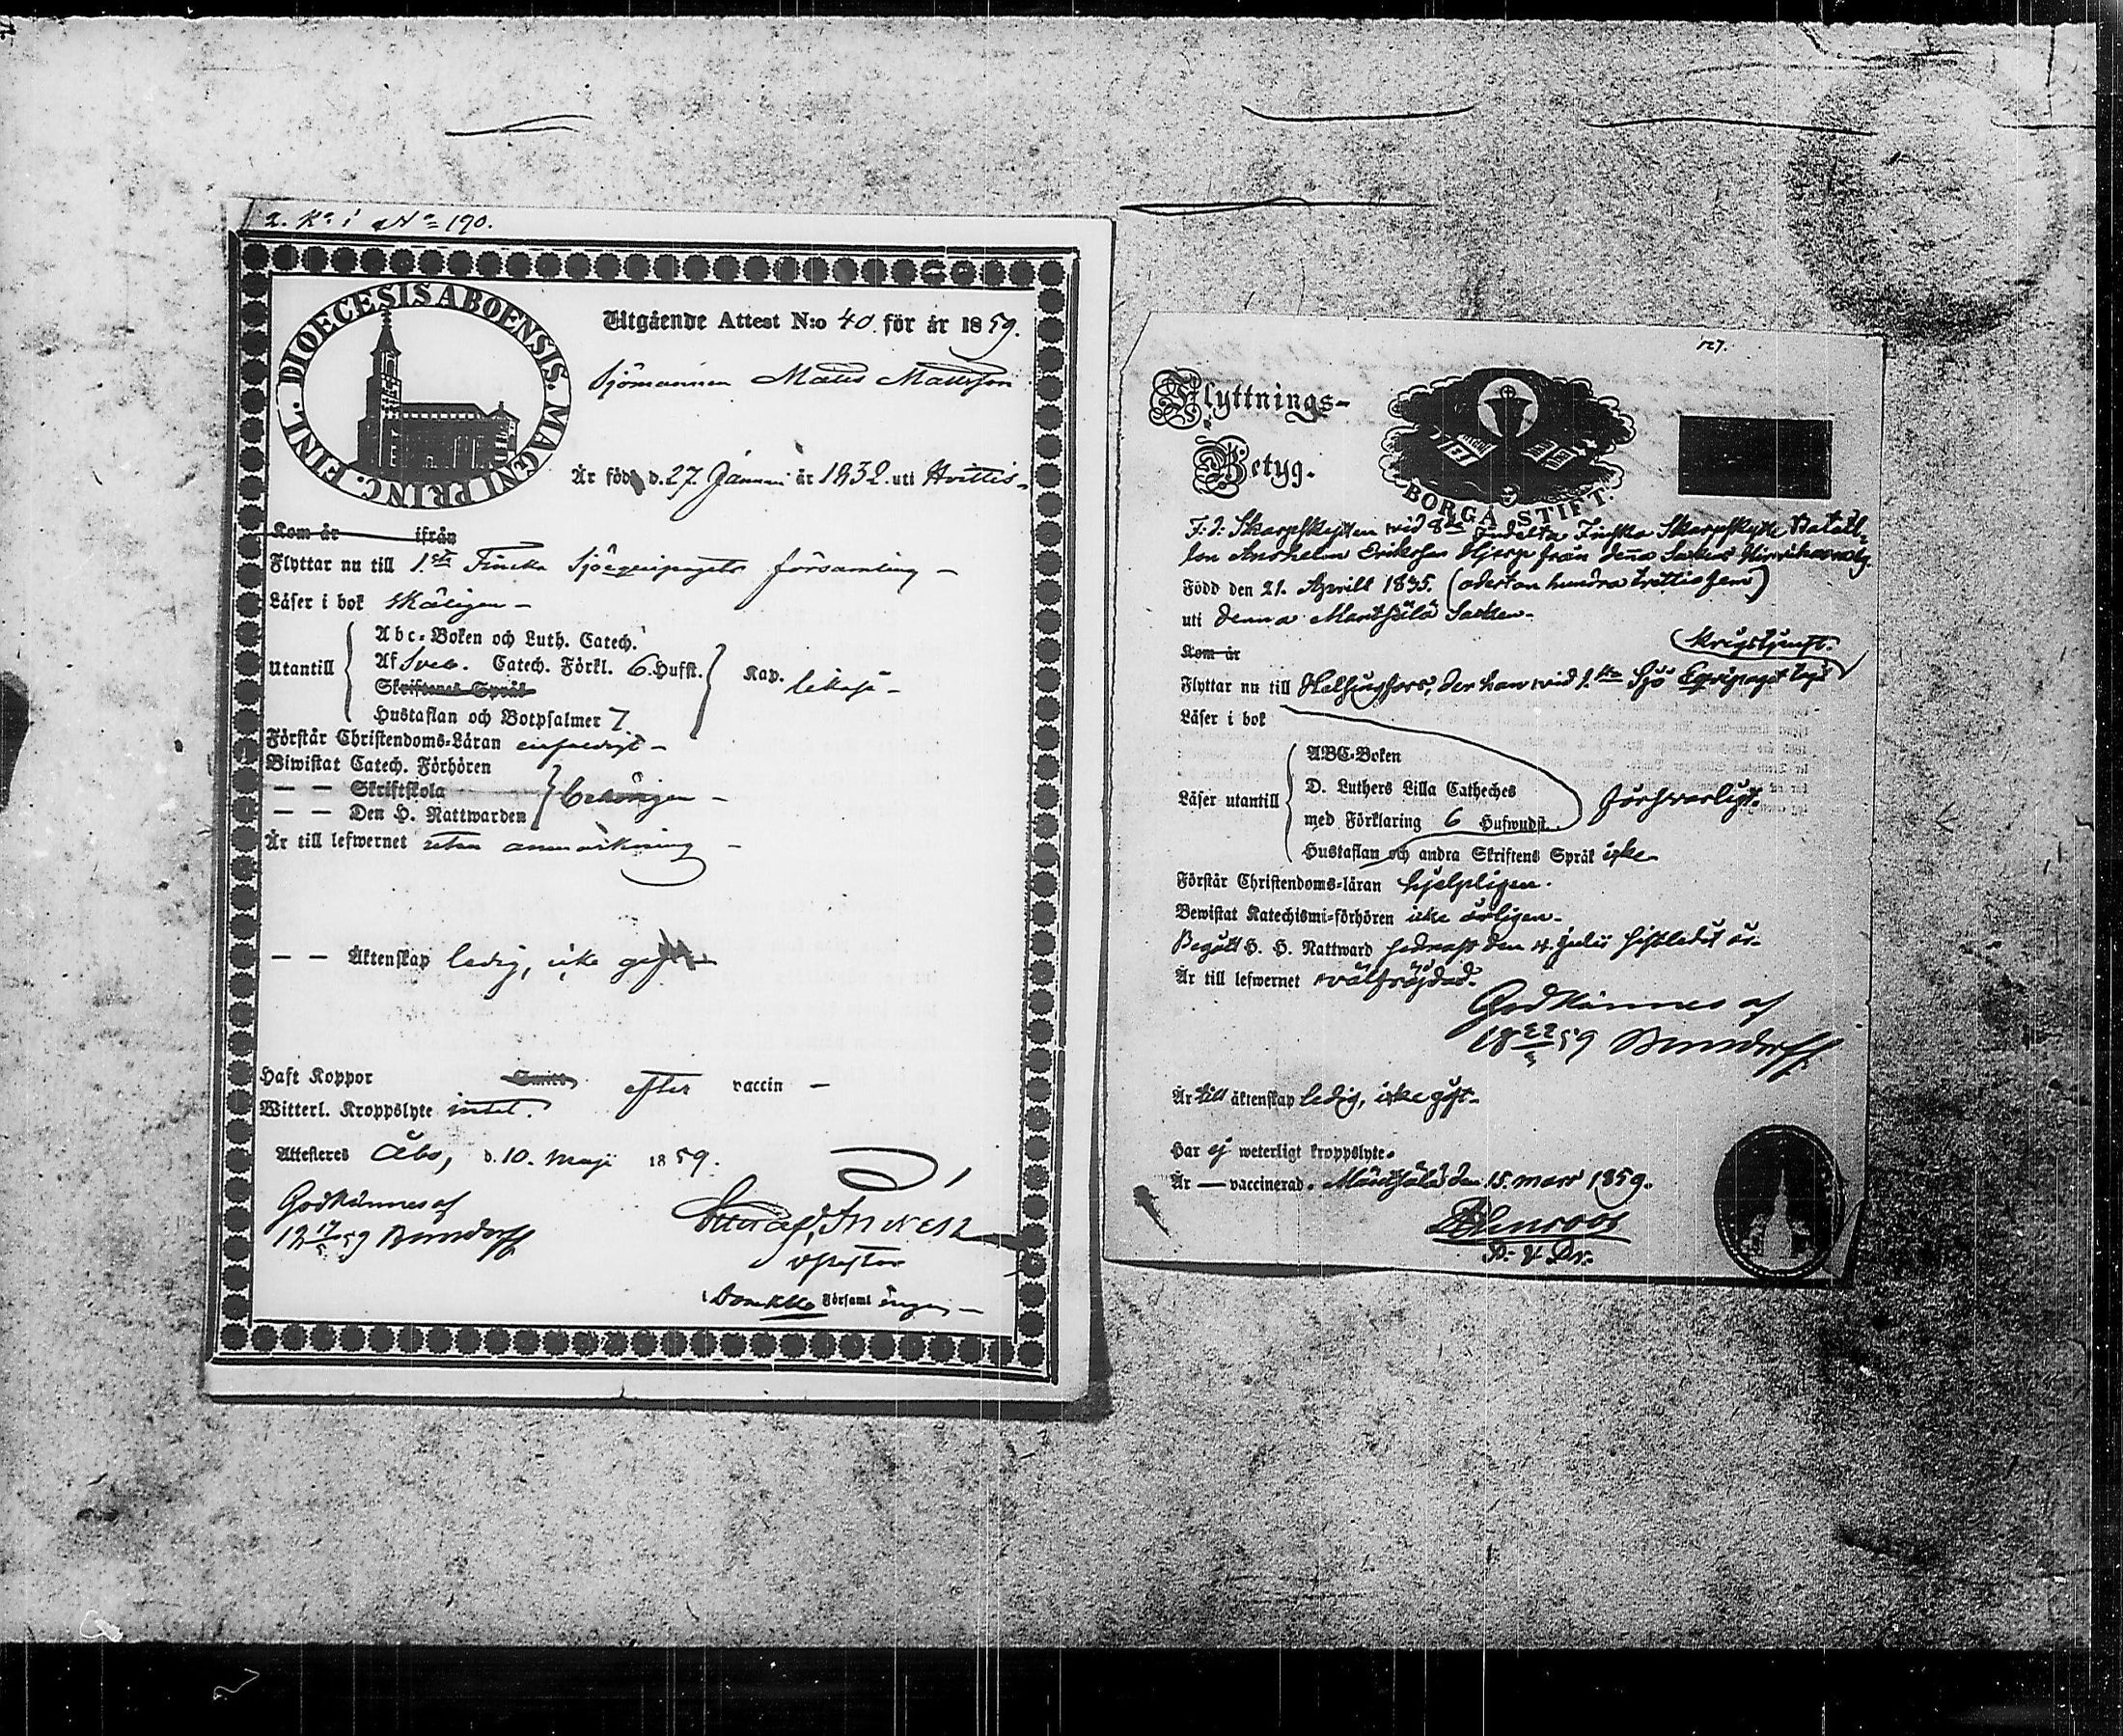 2. Ko i No 190.
FINL. DIOECESIS ABOENSIS. MAGNI PRINC.
Utgående Attest N:o 40. för år 1859.
Sjömannen Matts Mattsson
Är född d. 27 Januari år 1832. uti Hvittis-
Kom år ifrån
Flyttar nu till 1:sta Finska Sjöequipagets församling -
Läser i bok skäligen -
Utantill
Abc-Boken och Luth. Catech.
Af Sveb. Catech. Förkl. 6. Hufst.
Skriftenes Språk
Hustaflan och Botpsalmer 7.
Kap. likaså -
Förstår Christendoms-Läran enfaldigt -
Biwistat Catech. Förhören
— — Skriftskola
— — Den H. Nattwarden
behörigen -
Är till lefwernet utan anmärkning -
— — Äktenskap ledig, icke gift -
Haft Koppor efter vaccin -
Witterl. Kroppslyte intet.
Attesteres Åbo, d. 10. Maji 1859.
Godkännes af
18 17/5 59
i Domk. Församlingen -
127.
Flyttnings-
Betyg.
BORGÅ STIFT.
F: d: Skarpskytten vid 8:de Indelta Finska Skarpskytte Batail-
lon Anshelm Eriksson Hjerp från denna Socken
Född den 21. Aprill 1835. (aderton hundra trettiofem)
uti denna Mäntsälä Socken.
Kom år
krigstjenst.
Flyttar nu till Helsingfors, der han vid 1:sta Sjö Equipaget tagit
Läser i bok
Läser utantill
ABC-Boken
D. Luthers Lilla Catheches
med Förklaring 6 Hufwudst.
Hustaflan och andra Skriftens Språk icke
försvarligt.
Förstår Christendoms-läran hjelpligen.
Bewistat Katechismi-förhören icke årligen.
Begått H. H. Nattward sednast den 4. Julii sistledit år.
Är till lefwernet välfrejdad.
Godkännes af
18 22/3 59
Är till äktenskap ledig, icke gift.
Har ej weterligt kroppslyte.
Är — vaccinerad. Mäntsälä den 15. mars 1859.